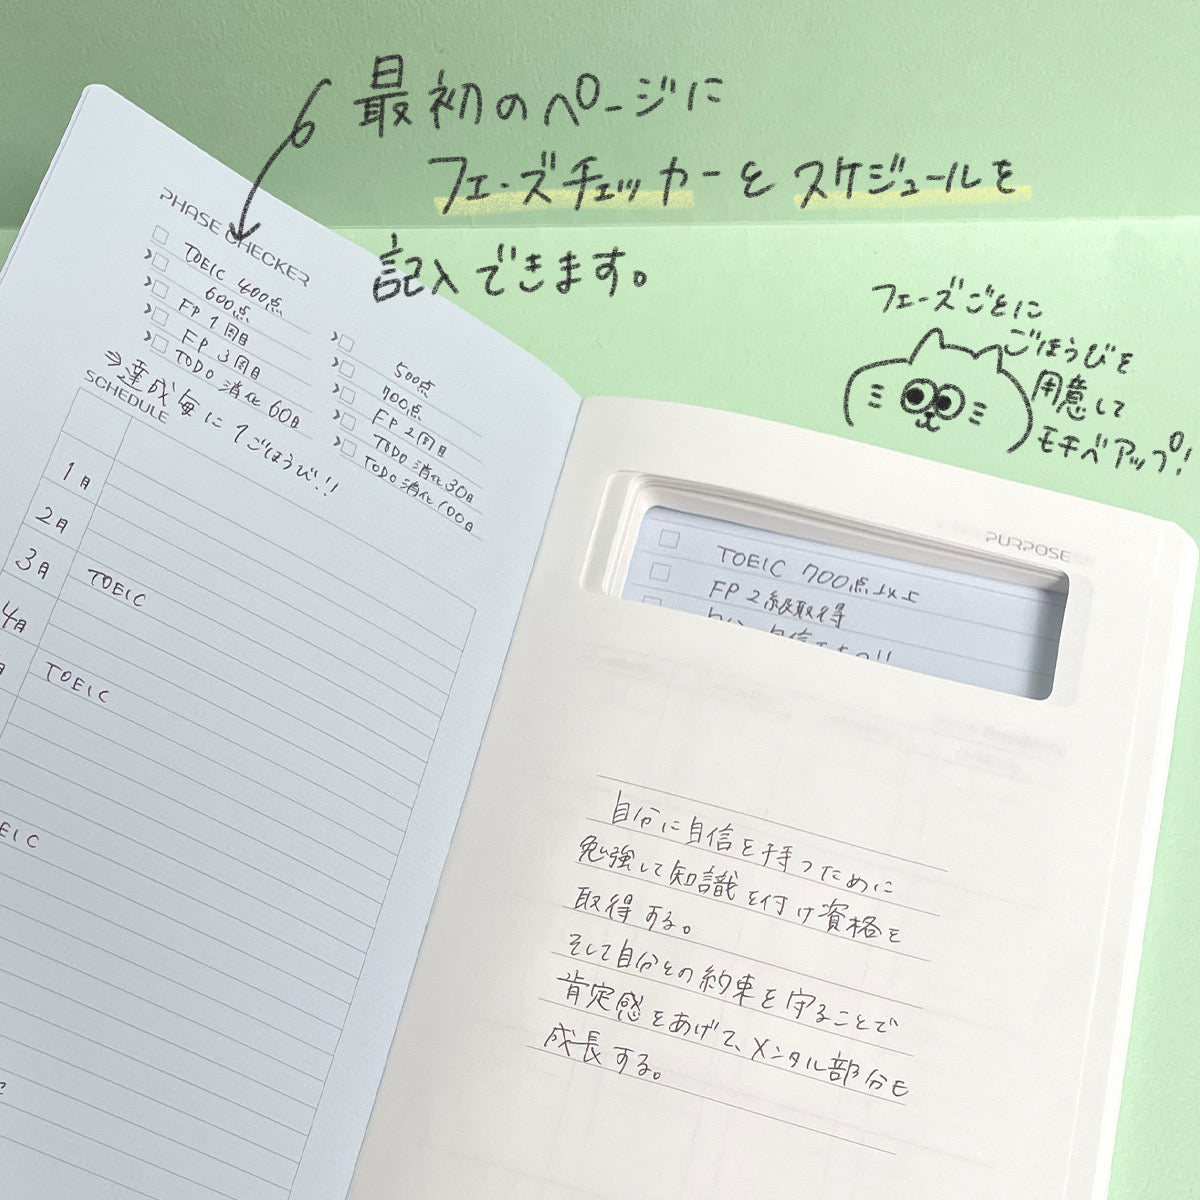 最初のページに
フェーズチェッカーとスケジュールを
記入できます。
フェーズごとに
ごほうびを
用意して
モチベアップ!
PHASE CHECKER
TOEIC 400点
500点
600点
700点
FP 1周目
FP 2周目
FP 3周目
TODO 消化 30日
TODO 消化 60日
TODO 消化 100日
⇒達成毎に1ごほうび!!
SCHEDULE
1月
2月
3月 TOEIC
4月
TOEIC
PURPOSE
TOEIC 700点以上
FP 2級取得
自分に自信を持つために
勉強して知識を付け資格を
取得する。
そして自分との約束を守ることで
肯定感をあげて、メンタル部分も
成長する。